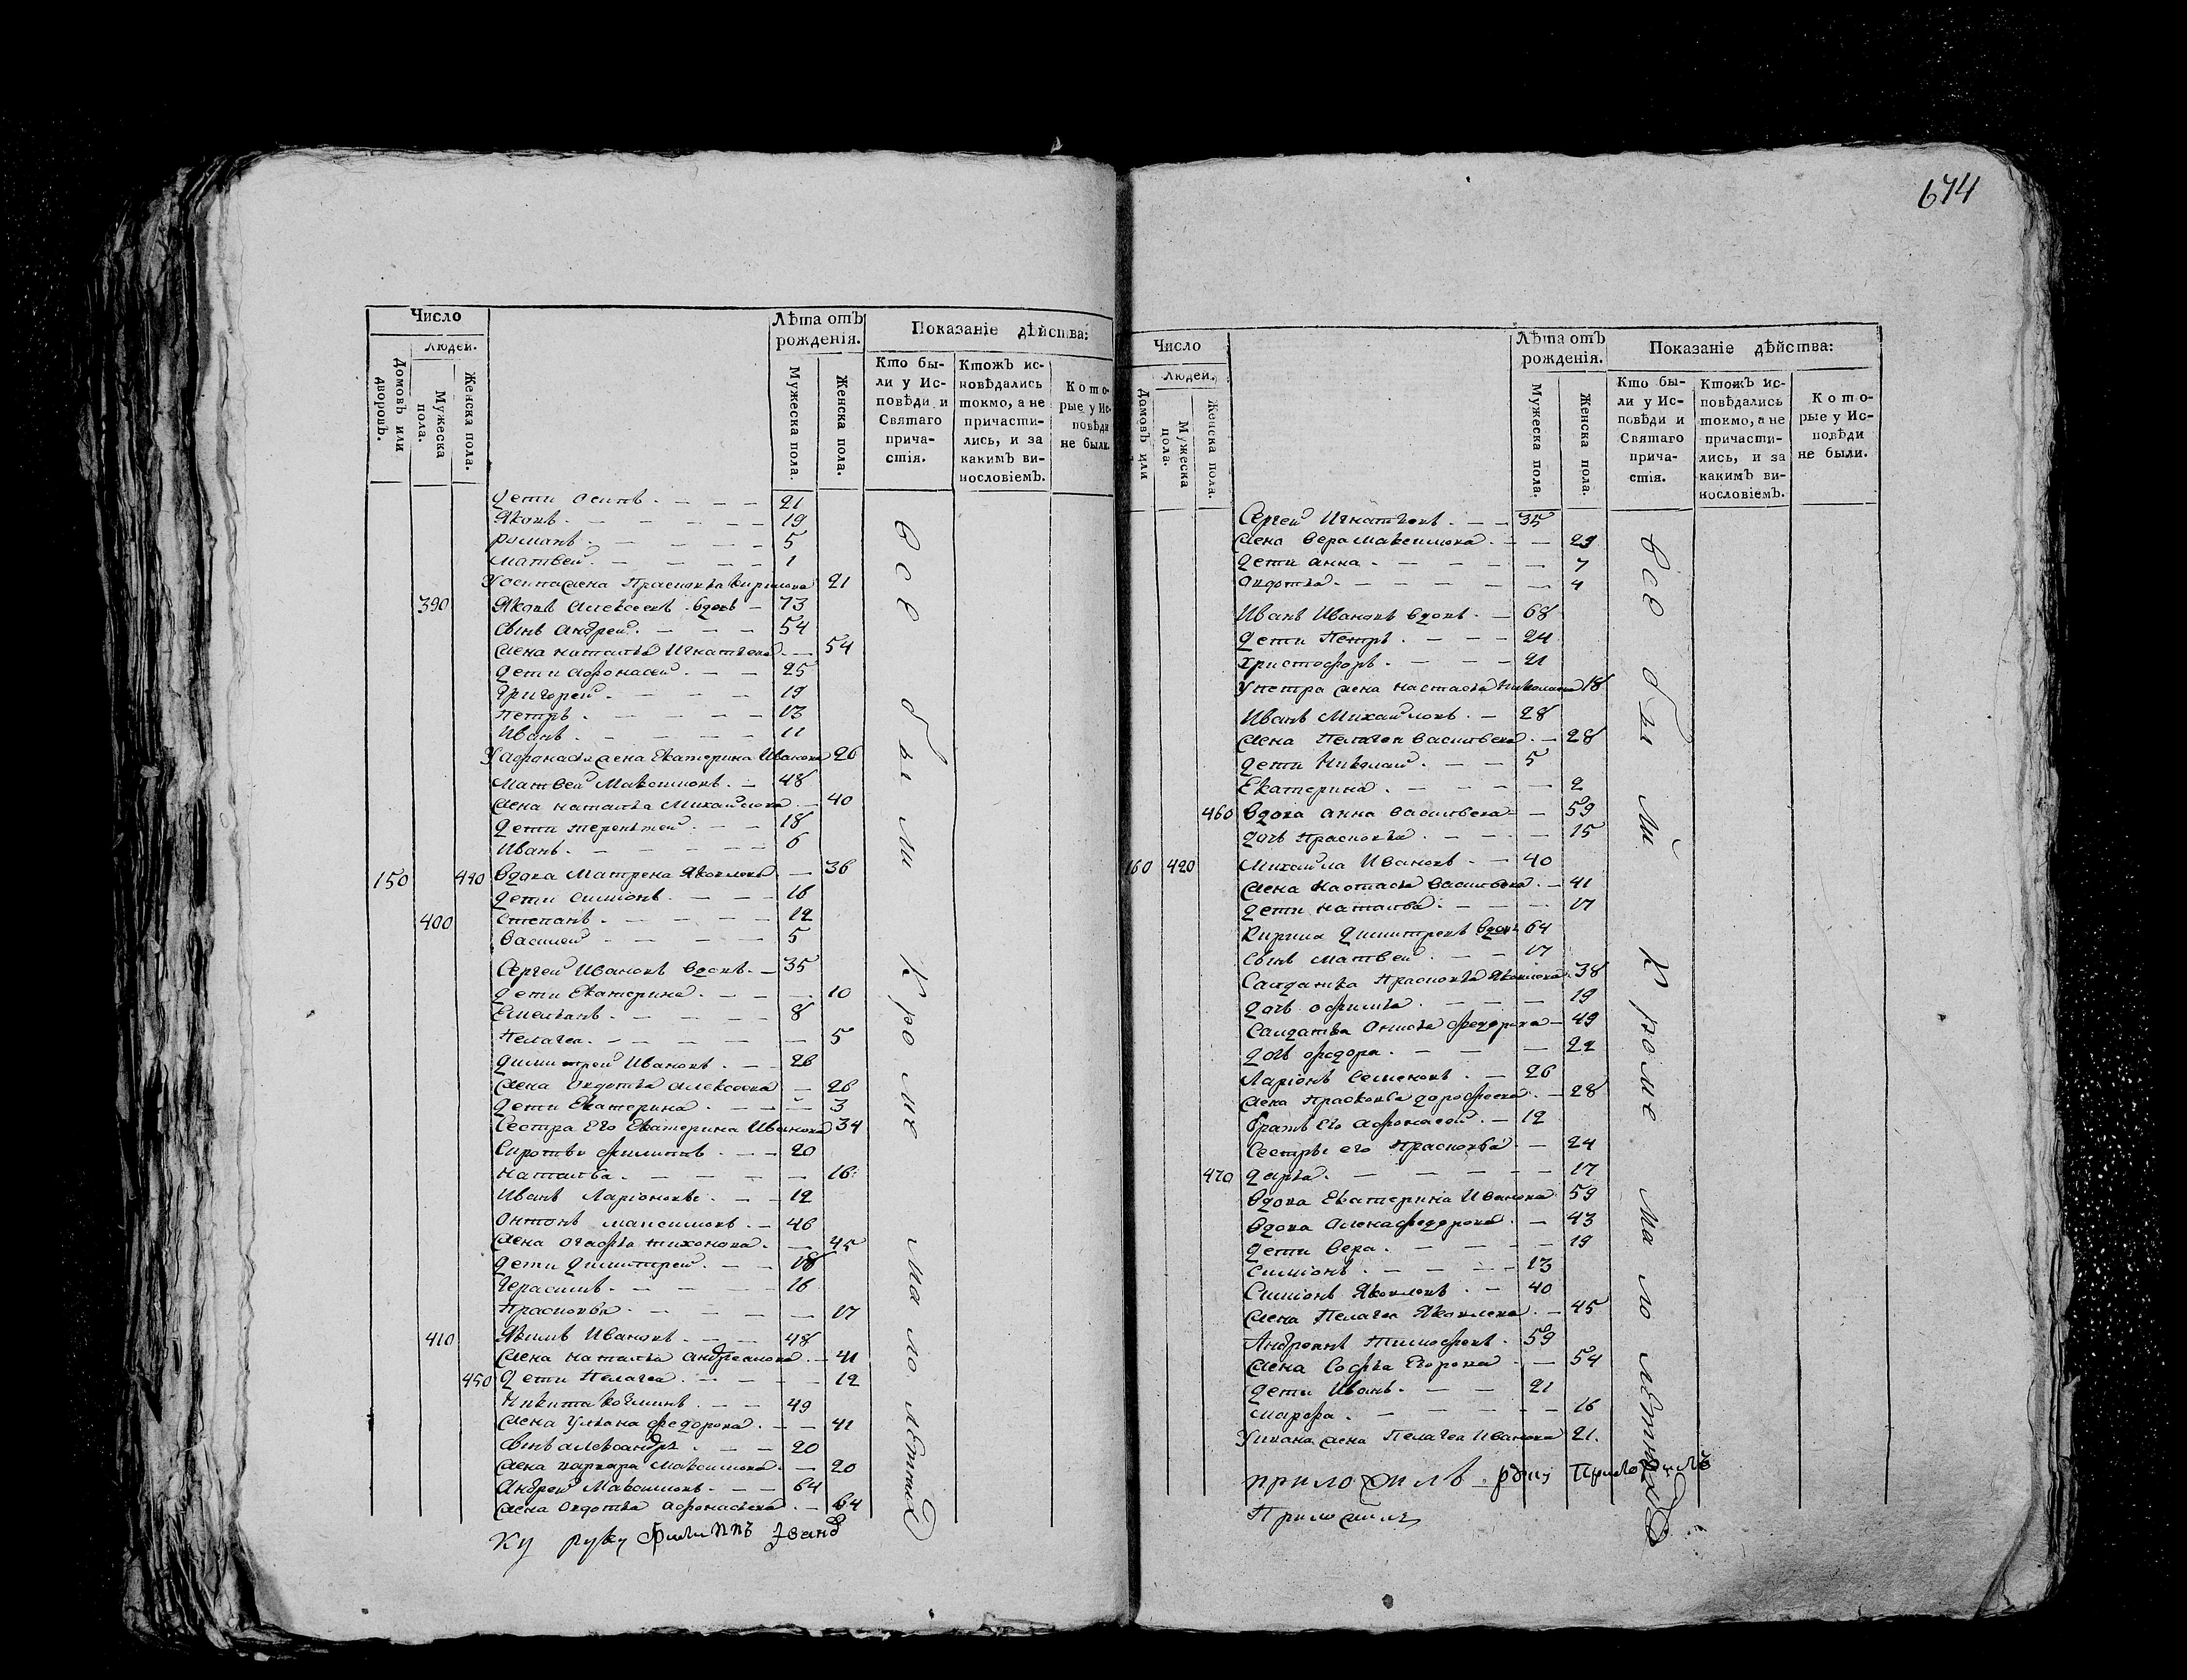 674
Число
Людей.
Домовъ или дворовъ.
Мужеска пола.
Женска пола.
Лѣта отъ рожденія.
Мужеска пола.
Женска пола.
Показаніе дѣйства:
Кто были у Исповѣди и Святаго причастія.
Ктожъ исповѣдались токмо, а не причастились, и за какимъ винословіемъ.
Которые у Исповѣди не были.
дети осипъ 21
Яковъ 19
романъ 5
матвей 1
У осипа жена Прасковья Кирилова 21
390 Яковъ Алексеевъ вдовъ 73
сынъ андрей 54
жена наталья Игнатьева 54
дети афонасей 25
Григорей 19
Петръ 13
Иванъ 11
У афонасья жена Екатерина Иванова 26
Матвей Максимовъ 48
жена наталья Михайлова 40
дети терентей 18
Иванъ 6
150 440 вдова Матрена Яковлева 36
дети симионъ 16
400 степанъ 12
василей 5
Сергей Ивановъ вдовъ 35
дети Екатерина 10
Емельянъ 8
Пелагея 5
димитрей Ивановъ 26
жена овдотья алексеева 26
дети Екатерина 3
Сестра Его Екатерина Иванова 34
Сироты филиппъ 20
наталья 16
Иванъ Ларіоновъ 12
онтонъ максимовъ 46
жена огафья тихонова 45
дети димитрей 18
Герасимъ 16
Прасковья 17
410 Якимъ Ивановъ 48
жена наталья андреанова 41
450 дети Пелагея 12
Никита козминъ 49
жена Ульяна федорова 41
сынъ александръ 20
жена варвара Максимова 20
Андрей Максимовъ 64
жена овдотья афонасьева 64
Все были кроме малолѣтныхъ
ку руку Филиппъ Иванъ
Число
Людей.
Домовъ или
Мужеска пола.
Женска пола.
Лѣта отъ рожденія.
Мужеска пола.
Женска пола.
Показаніе дѣйства:
Кто были у Исповѣди и Святаго причастія.
Ктожъ исповѣдались токмо, а не причастились, и за какимъ винословіемъ.
Которые у Исповѣди не были.
Сергей Игнатьевъ 35
жена вера максимова 29
дети анна 7
овдотья 4
Иванъ Ивановъ вдовъ 68
дети Петръ 24
христофоръ 21
У петра жена настасья Николаева 18
Иванъ Михайловъ 28
жена Пелагея васильева 28
дети Николай 5
Екатерина 2
460 вдова анна васильева 59
дочь Прасковья 15
160 420 Михайла Ивановъ 40
жена настасья васильева 41
дети наталья 17
Кирила димитревъ вдовъ 64
сынъ матвей 17
Салдатка Прасковья Яковлева 38
дочь офимья 19
Салдатка онисья федорова 49
дочь федора 22
Ларіонъ Семеновъ 26
жена Прасковья дорофеева 28
братъ его афонасей 12
Сестры его Прасковья 24
470 дарья 17
вдова Екатерина Иванова 59
вдова алена федорова 43
дети вера 19
симионъ 13
Симионъ Яковлевъ 40
жена Пелагея Яковлева 45
Андреянъ Тимофеевъ 59
жена Софья Егорова 54
дети Иванъ 21
марфа 16
У ивана жена Пелагея Иванова 21
Все были кроме малолѣтныхъ
приложилъ
Приложилъ